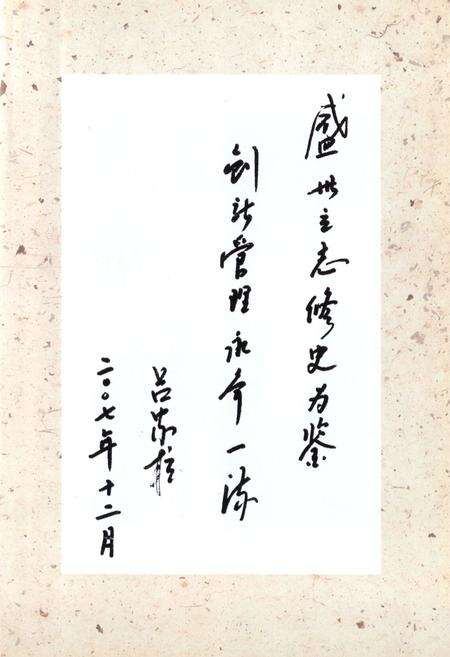 盛世立志修史为鉴
创新管理永争一流
吕
二〇〇七年十二月